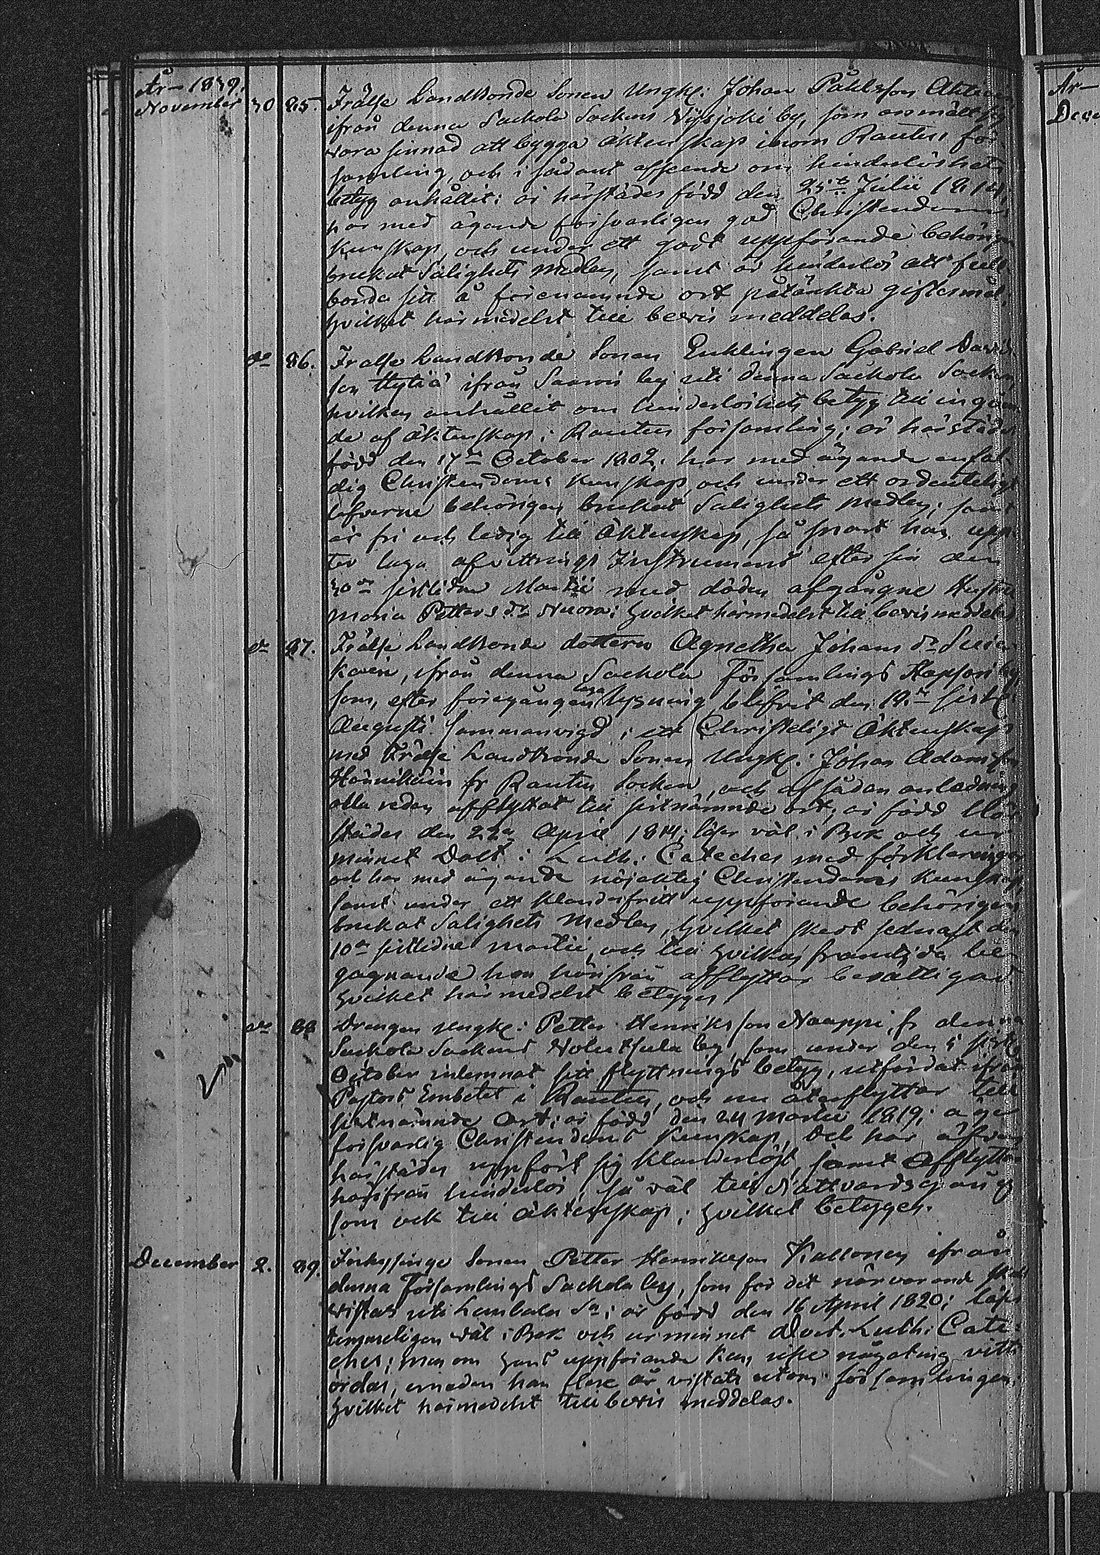 År 1839. År
November 30 85. Frälse Landbonde Sonen Ungk: Johan Påhlsson
ifrån denna Sackola Sockens by, som anmält sig
vara sinnad att bygga äktenskap inom Rautus för-
samling, och i sådant afseende om hinderlöshets
betyg anhållit; är härstädes född den 25te Julii 1814;
har med ägande försvarligen god Christendoms
Kunskap och under ett godt uppförande behörigen
brukat Salighets Medlen, samt är hinderlös att full-
borda sitt å förenämnde ort påtänkta giftermål.
Hvilket härmedelst till bevis meddelas.
do 86. Frälse Landbonde Sonen Enklingen Gabriel Davids-
son Hytiä ifrån by uti denna Sackola Socken
hvilken anhållit om hinderlöshets betyg till ingåen-
de af äktenskap i Rautus församling; är härstädes
född den 17de October 1802. har med ägande enfal-
dig Christendoms Kunskap och under ett ordenteligt
lefverne behörigen brukat Salighets Medlen; samt
är fri och ledig till Äktenskap, så snart han upp-
ter laga afvittrings Instrument efter sin den
30de sistledne Martii med döden afgångne Hustru
Maria Petters dr: Hvilket härmedelst till bevis meddelas
do 87. Frälse Landbonde dottern Agnetha Johans dr
ifrån denna Sackola Församlings Hapsari by,
som, efter föregången lysning blifvit den 18de sistl.
Augusti Sammanvigd i ett Christeligt Äktenskap
med Frälse Landbonde Sonen Ungk: Johan Adamsson
fr Rautus Socken, och af sådan anledning
alla redan afflyttat till sistnämnde ort, är född här-
städes den 22dra April 1814; läser väl i Bok och ur
minnet Doct: Luth: Cateches med förklaringen
och har med ägande nöjaktig Christendoms Kunskap
samt under ett klanderfritt uppförande behörigen
brukat Salighets Medlen, hvilket skedt sednast den
10de sistledne Martii, och till hvilkas framtida be-
gagnande hon härifrån afflyttar berättigad
Hvilket härmedelst betygas
do 88. Drängen Ungk: Petter Henriksson Naappi, fr denna
Sackola Sockens by, som under den 5 sistl.
October inlemnat sitt flyttnings betyg, utfärdat ifrån
Pastors Embetet i Rautus, och nu återflyttar till
sistnämnde ort; är född den 24 Martii 1819; äger
försvarlig Christendoms Kunskap, och har äfven
härstädes uppfört sig klanderlöst, samt afflyttar
härifrån hinderlös, så väl till Nattvardsgång
som ock till äktenskap; hvilket betygas.
December 2. 89. Inhysinge Sonen Petter Henriksson Kallonen ifrån
denna Församlings Sackola by, som för det närvarande
vistas uti Lembala Sn; är född den 16 April 1820; läser
temmeligen väl i Bok och ur minnet Doct: Luth: Cate-
ches; men om hans uppförande kan icke någoting vitts-
ordas, emedan han flere år vistats utom församlingen.
Hvilket härmedelst till bevis meddelas.